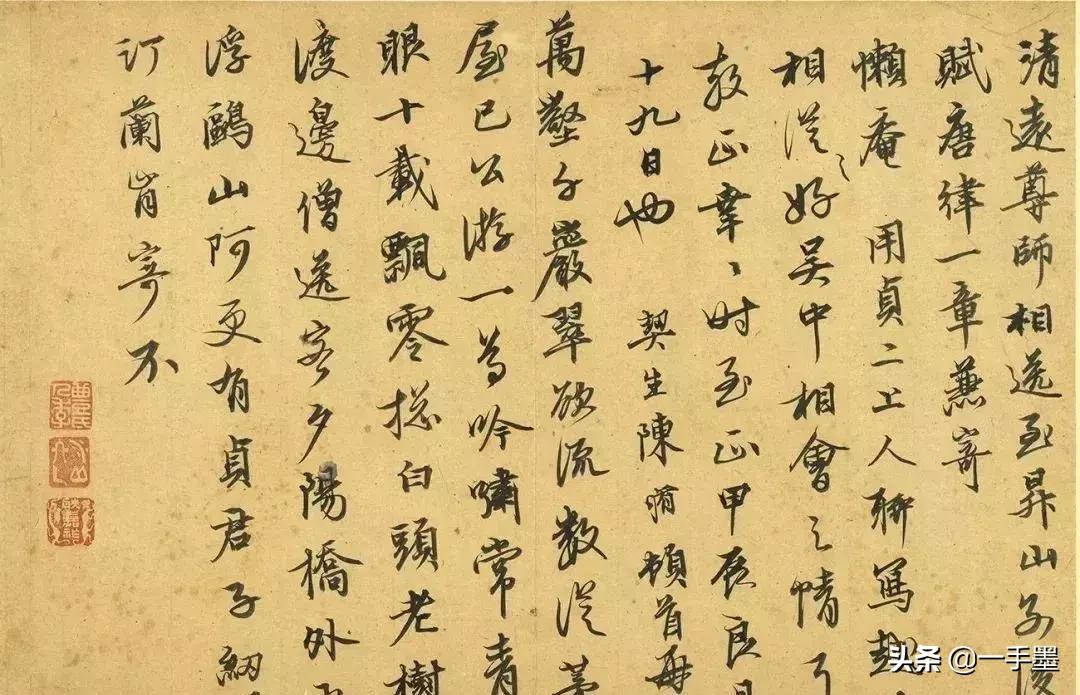 清遠尊師相送至昇山
賦唐律一章蕪寄
懶庵 用貞二上人聊寫
相從之好吴中相會之情
教正幸〻时至正甲辰良
十九日也 契生陳 頓首再
萬壑千巖翠欲流數從
屋已公游一為吟嘯常青
眼十載飄零搃白頭老樹
渡邊僧送客夕陽橋外
浮鷗山阿更有貞君子紉
汀蘭肯寄不
头条 @一手墨